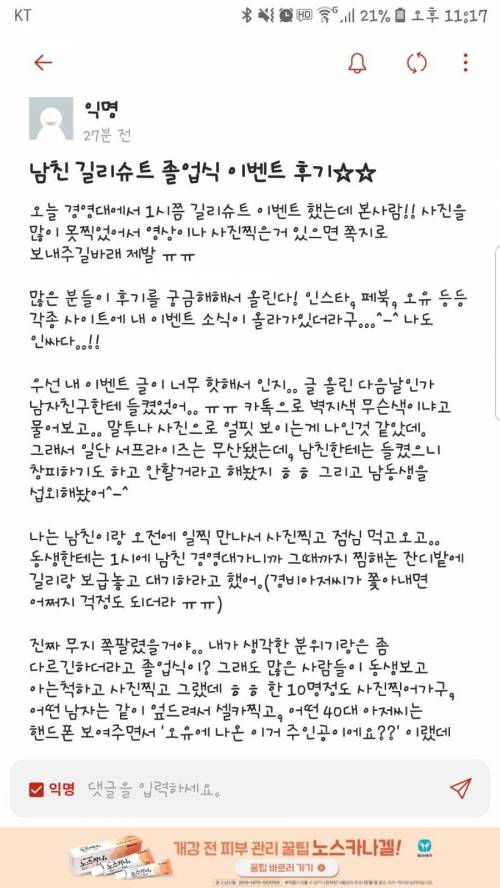 KT
HD
21%
오후 11:17
익명
27분 전
남친 길리슈트 졸업식 이벤트 후기☆☆
오늘 경영대에서 1시쯤 길리슈트 이벤트 했는데 본사람!! 사진을
많이 못찍었어서 영상이나 사진찍은거 있으면 쪽지로
보내주길바래 제발 ㅠㅠ
많은 분들이 후기를 궁금해해서 올린다! 인스타, 페북, 오유 등등
각종 사이트에 내 이벤트 소식이 올라가있더라구...^-^ 나도
인싸다..!!
우선 내 이벤트 글이 너무 핫해서 인지.. 글 올린 다음날인가
남자친구한테 들켰었어.. ㅠㅠ 카톡으로 벽지색 무슨색이냐고
물어보고.. 말투나 사진으로 얼핏 보이는게 나인것 같았데.
그래서 일단 서프라이즈는 무산됐는데, 남친한테는 들켰으니
창피하기도 하고 안할거라고 해놨지 ㅎㅎ 그리고 남동생을
섭외해놨어^-^
나는 남친이랑 오전에 일찍 만나서 사진찍고 점심 먹고오고..
동생한테는 1시에 남친 경영대가니까 그때까지 찜해논 잔디밭에
길리랑 보급놓고 대기하라고 했어.(경비아저씨가 쫓아내면
어쩌지 걱정도 되더라 ㅠㅠ)
진짜 무지 쪽팔렸을거야.. 내가 생각한 분위기랑은 좀
다르긴하더라고 졸업식이? 그래도 많은 사람들이 동생보고
아는척하고 사진찍고 그랬데 ㅎㅎ 한 10명정도 사진찍어가구,
어떤 남자는 같이 엎드려서 셀카찍고, 어떤 40대 아저씨는
핸드폰 보여주면서 '오유에 나온 이거 주인공이에요??' 이랬데
익명 댓글을 입력하세요.
개강 전 피부 관리 꿀팁 노스카나겔!
꿀팁 바로가기 >